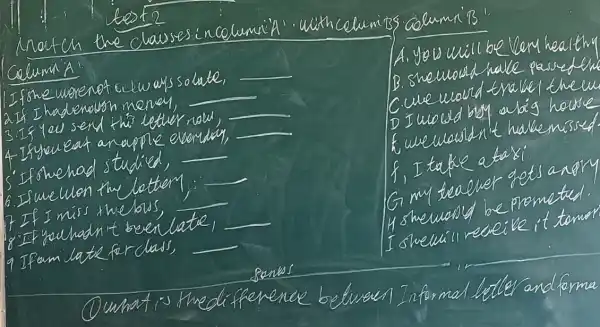 test 2
Match the clauses in column 'A' with column B
Column 'A'
1 If she were not always so late,
2. If I had enough money,
3. If you send this letter now,
4. If you eat an apple everyday,
5. If she had studied,
6. If we won the lottery,
7 If I miss the bus,
8. If you hadn't been late,
9 If am late for class,
column 'B'
A. you will be very healthy
B. She would have passed the
C. we would travel the w
D I would buy a big house
E, we wouldn't have missed
f, I take a taxi
G, my teacher gets angry
H she would be promoted.
I she will receive it tomorr
Bonus
① what is the difference between Informal letter and forma